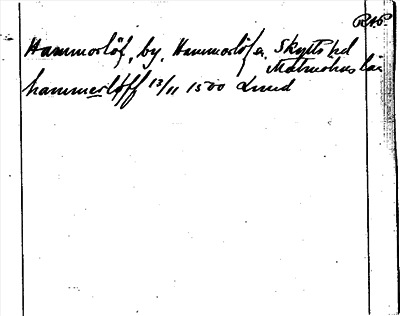 RAP
Hammarlöf, by, Hammarlöfs sn. Skytts hd
Malmöhus län
hammerlöff 13/11 1500 Lund